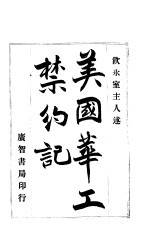 飲氷室主人述
美國華工
禁約記
廣智書局印行